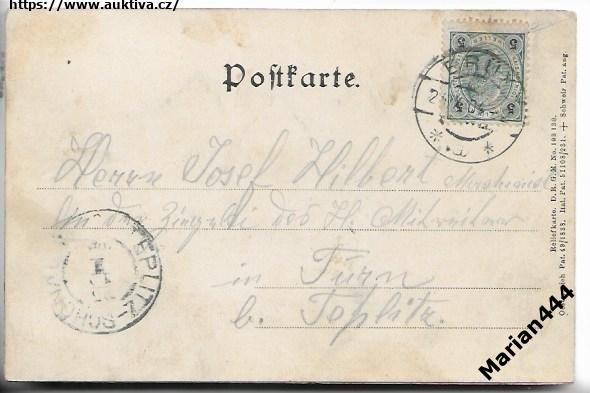 https://www.auktiva.cz/
Postkarte.
Herrn Josef Hilbert
in der Ziegelei des H.
in Turn
b. Teplitz.
TEPLITZ-SCHÖNAU
Reliefkarte. D. R. G. M. No. 103 130.
Pat. 49/1838. Ital. Pat. 51108/231. + Schweiz Pat. ang
Marian444